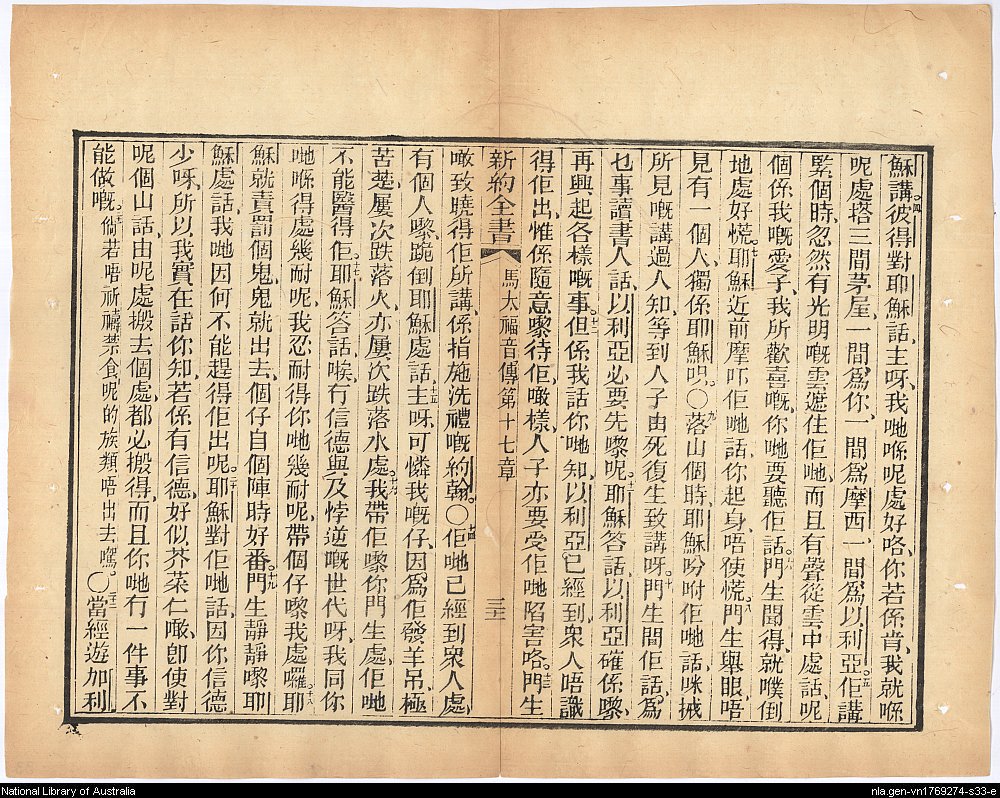 穌講彼得對耶穌話主呀我哋喺呢處好咯你若係肯我就喺
呢處搭三間茅屋一間爲你一間爲摩西一間爲以利亞佢講
緊個時忽然有光明嘅雲遮住佢哋而且有聲從雲中處話呢
個係我嘅愛子我所歡喜嘅你哋要聽佢話門生聞得就噗倒
地處好慌耶穌近前摩吓佢哋話你起身唔使慌門生舉眼唔
見有一個人獨係耶穌呮〇落山個時耶穌吩咐佢哋話咪拭
所見嘅講過人知等到人子由死復生致講呀門生問佢話爲
乜事讀書人話以利亞必要先嚟呢耶穌答話以利亞確係嚟
再興起各樣嘅事但係我話你哋知以利亞已經到衆人唔識
得佢出惟係隨意嚟待佢噉樣人子亦要受佢哋陷害咯門生
新約全書 馬太福音傳第十七章 三十三
噉致曉得佢所講係指施洗禮嘅約翰〇佢哋已經到衆人處
有個人嚟跪倒耶穌處話主呀可憐我嘅仔因爲佢發羊吊極
苦楚屢次跌落火亦屢次跌落水處我帶佢嚟你門生處佢哋
不能醫得佢耶穌答話唉冇信德與及悖逆嘅世代呀我同你
哋喺得處幾耐呢我忍耐得你哋幾耐呢帶個仔嚟我處囉耶
穌就責罰個鬼鬼就出去個仔自個陣時好番門生靜靜嚟耶
穌處話我哋因何不能趕得佢出呢耶穌對佢哋話因你信德
少呀所以我實在話你知若係有信德好似芥菜仁噉卽使對
呢個山話由呢處搬去個處都必搬得而且你哋冇一件事不
能做嘅倘若唔祈禱禁食呢的族類唔出去㗎〇當經遊加利
National Library of Australia
nla.gen-vn1769274-s33-e